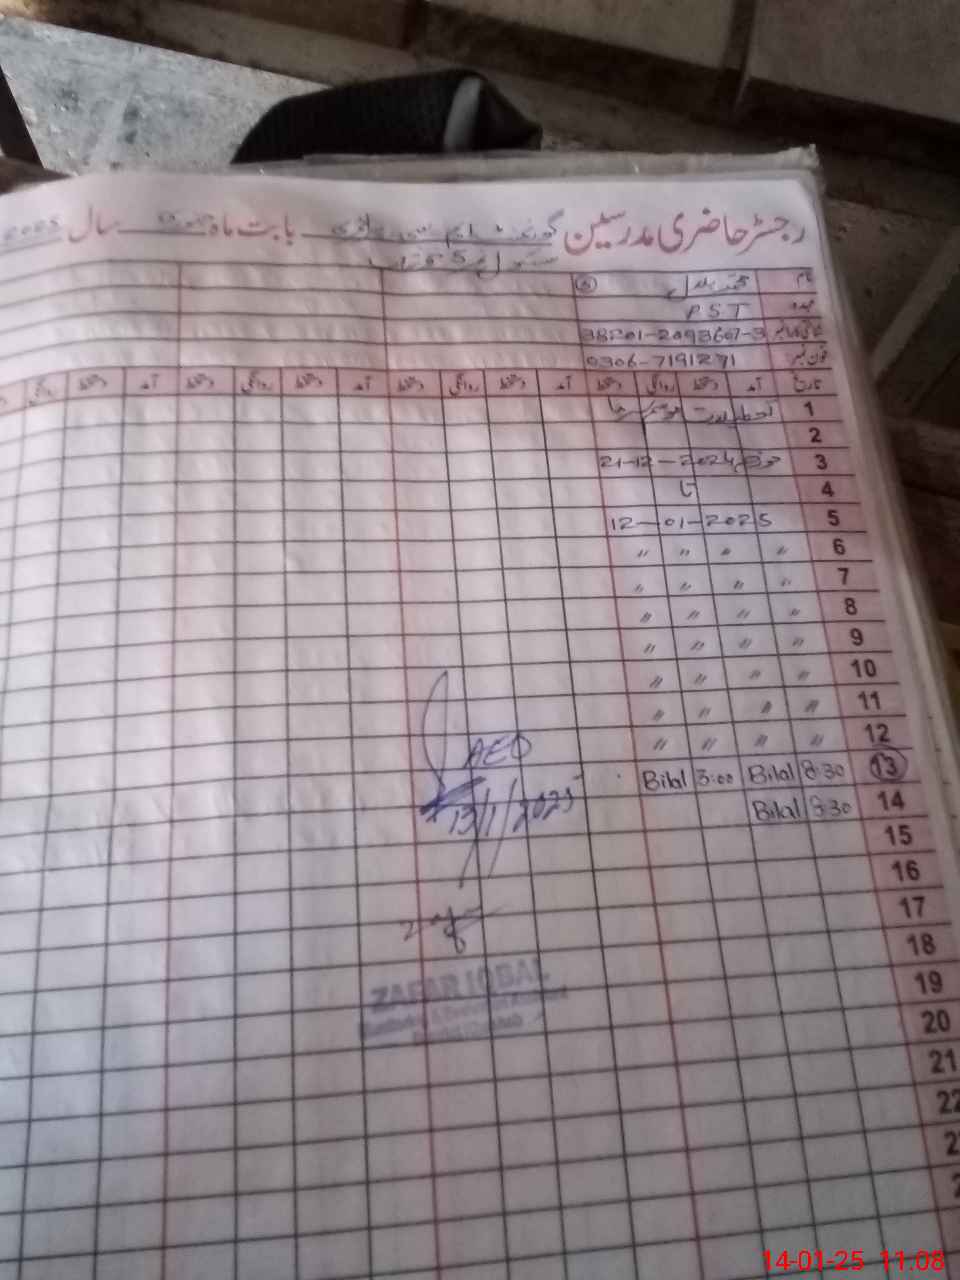 رجسٹر حاضری مدرسین گورنمنٹ ایم سی پرائمری بابت ماہ جنوری سال 2025
سکول نمبر 5
نام محمد بلال ⑥
عہدہ P.S.T
شناختی کارڈ نمبر 38201-2093607-3
فون نمبر 0306-7191271
تاریخ آمد دستخط روانگی دستخط آمد دستخط روانگی دستخط آمد دستخط روانگی دستخط آمد دستخط روانگی
1 تعطیلات موسم سرما
2
3 مورخہ 21-12-2024
4 تا
5 12-01-2025
6 〃 〃 〃 〃
7 〃 〃 〃 〃
8 〃 〃 〃 〃
9 〃 〃 〃 〃
10 〃 〃 〃 〃
11 〃 〃 〃 〃
12 〃 〃 〃 〃
13 8:30 Bilal 3:00 Bilal
14 8:30 Bilal
15
16
17
18
19
20
21
22
AEO
13/1/2025
ZAFAR IQBAL
14-01-25 11:08